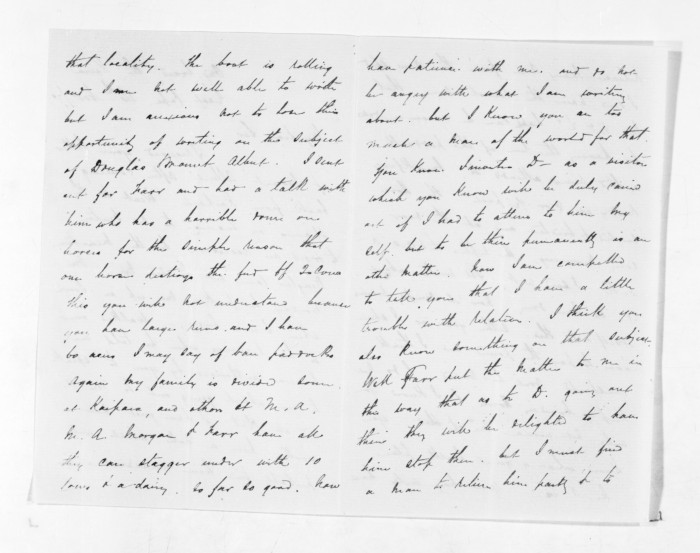 that locality. The boat is rolling
and I am not well able to write
but I am anxious not to lose this
opportunity of writing on the subject
of Douglas & Mount Albert. I sent
out for Farr and had a talk with
him who has a horrible down on
horses for the simple reason that
one horse destroys the feed of 2 Cows
this you will not understand because
you have large runs and I have
60 acres I may say of bare paddocks
again my family is divided some
at Kaipara, and others at M.A.
M. A Morgan & Farr have all
they can stagger under with 10
Cows & a dairy. So far so good. Now
have patience with me. and do not
be angry with what I am writing
about. but I know you are too
much a man of the world for that.
You know I invited D— as a visitor
which you know will be duly carried
out if I had to attend to him my
self. but to be there permanently is an
other matter. Now I am compelled
to tell you that I have a little
trouble with relation. I think you
also know something on that subject.
Well Farr put the matter to me in
this way that as to D. going out
there they will be delighted to have
him stop there. but I must find
a man to return him partly & to